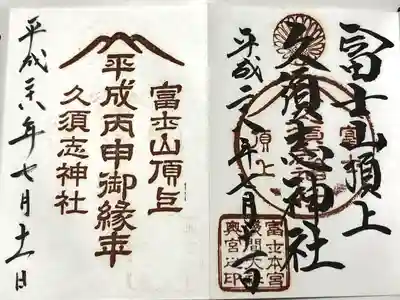 富士山頂上
久須志神社
平成二八年七月十一日
頂上
富士本宮
浅間大社
奥宮之印
富士山頂上
久須志神社
平成丙申御縁年
平成二八年七月十一日